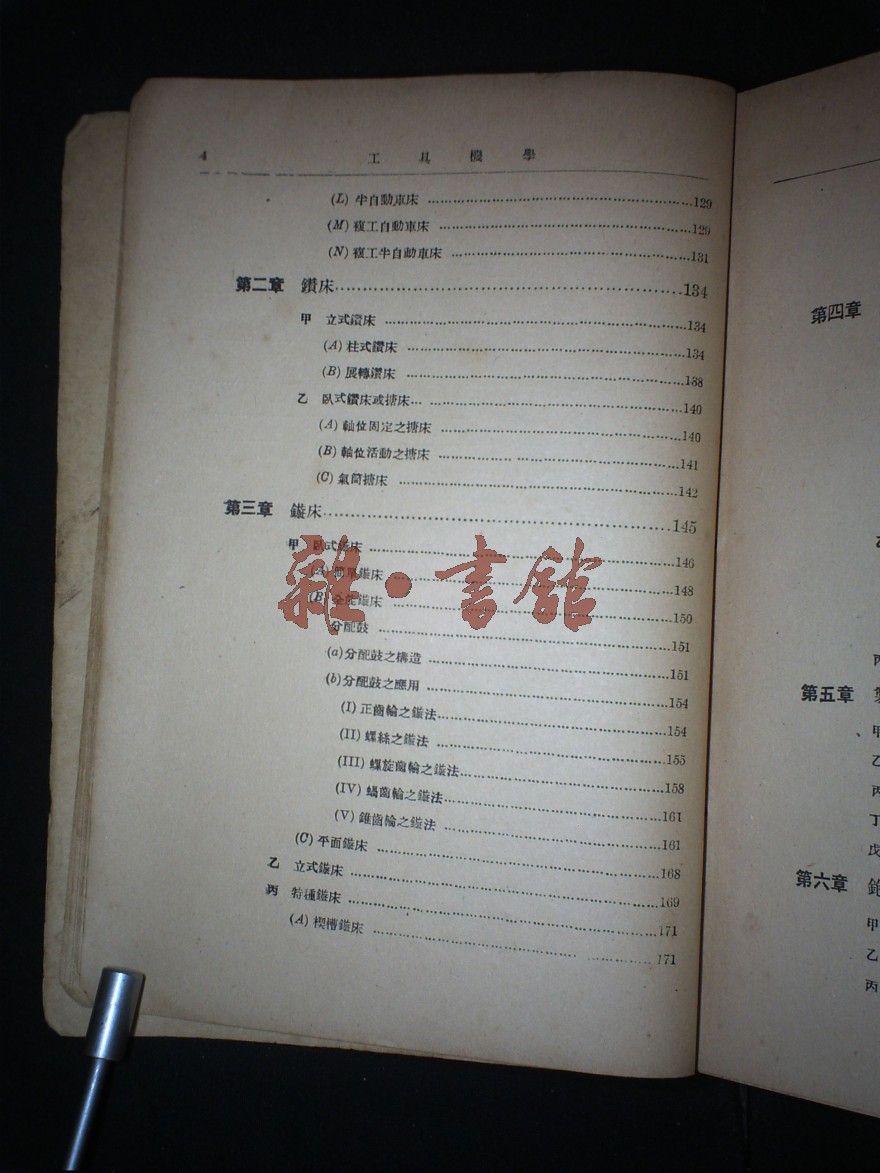 4 工具機學
(L) 半自動車床 ......129
(M) 複工自動車床 ......129
(N) 複工半自動車床 ......131
第二章 鑽床......134
甲 立式鑽床 ......134
(A) 柱式鑽床 ......134
(B) 展轉鑽床 ......138
乙 臥式鑽床或搪床......140
(A) 軸位固定之搪床 ......140
(B) 軸位活動之搪床 ......141
(C) 氣筒搪床 ......142
第三章 鏇床......145
甲 臥式鏇床 ......146
(A) 簡單鏇床 ......148
(B) 全能鏇床 ......150
分配鼓 ......151
(a) 分配鼓之構造 ......151
(b) 分配鼓之應用 ......154
(I) 正齒輪之鏇法......154
(II) 螺絲之鏇法 ......155
(III) 螺旋齒輪之鏇法......158
(IV) 蝸齒輪之鏇法......161
(V) 錐齒輪之鏇法 ......161
(C) 平面鏇床 ......168
乙 立式鏇床 ......169
丙 特種鏇床 ......171
(A) 楔槽鏇床 ......171
雜·書館
第四章
乙
丙
第五章
甲
乙
丙
丁
戊
第六章
甲
乙
丙